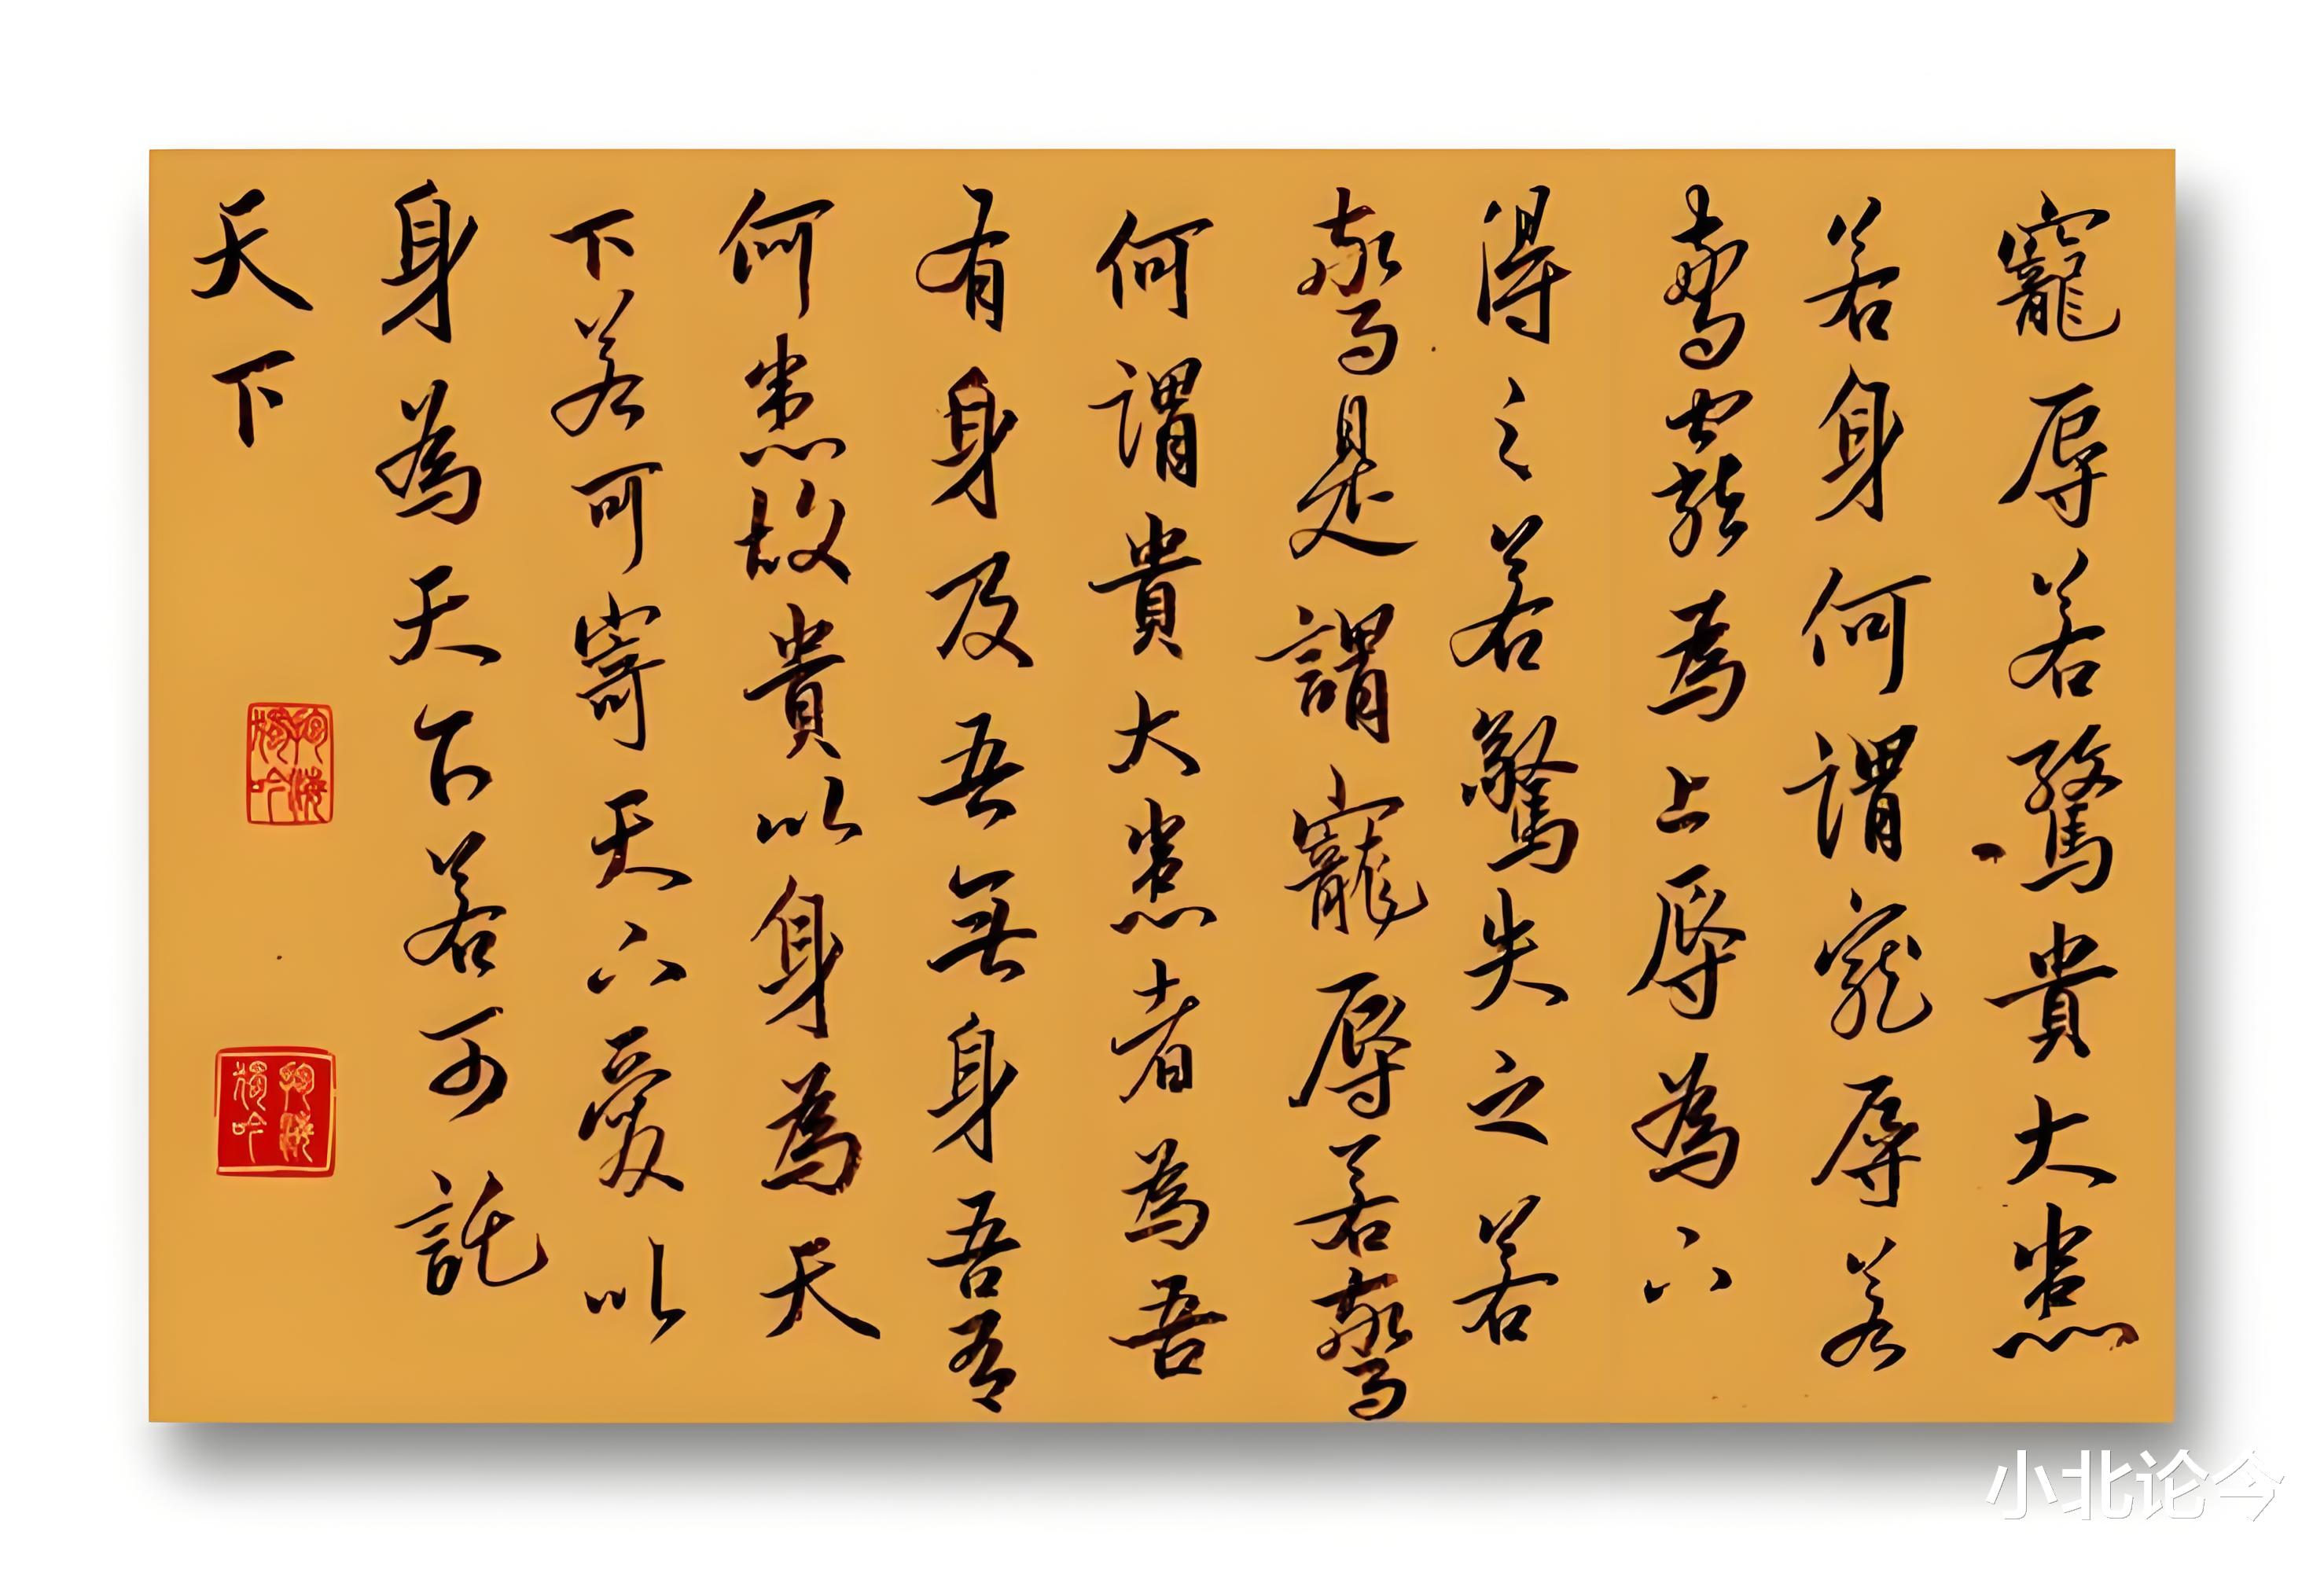 寵辱若驚貴大患
若身何謂寵辱若
驚寵為上辱為下
得之若驚失之若
驚是謂寵辱若驚
何謂貴大患者為吾
有身及吾無身吾有
何患故貴以身為天
下若可寄天下愛以
身為天下若可託
天下
小北论今